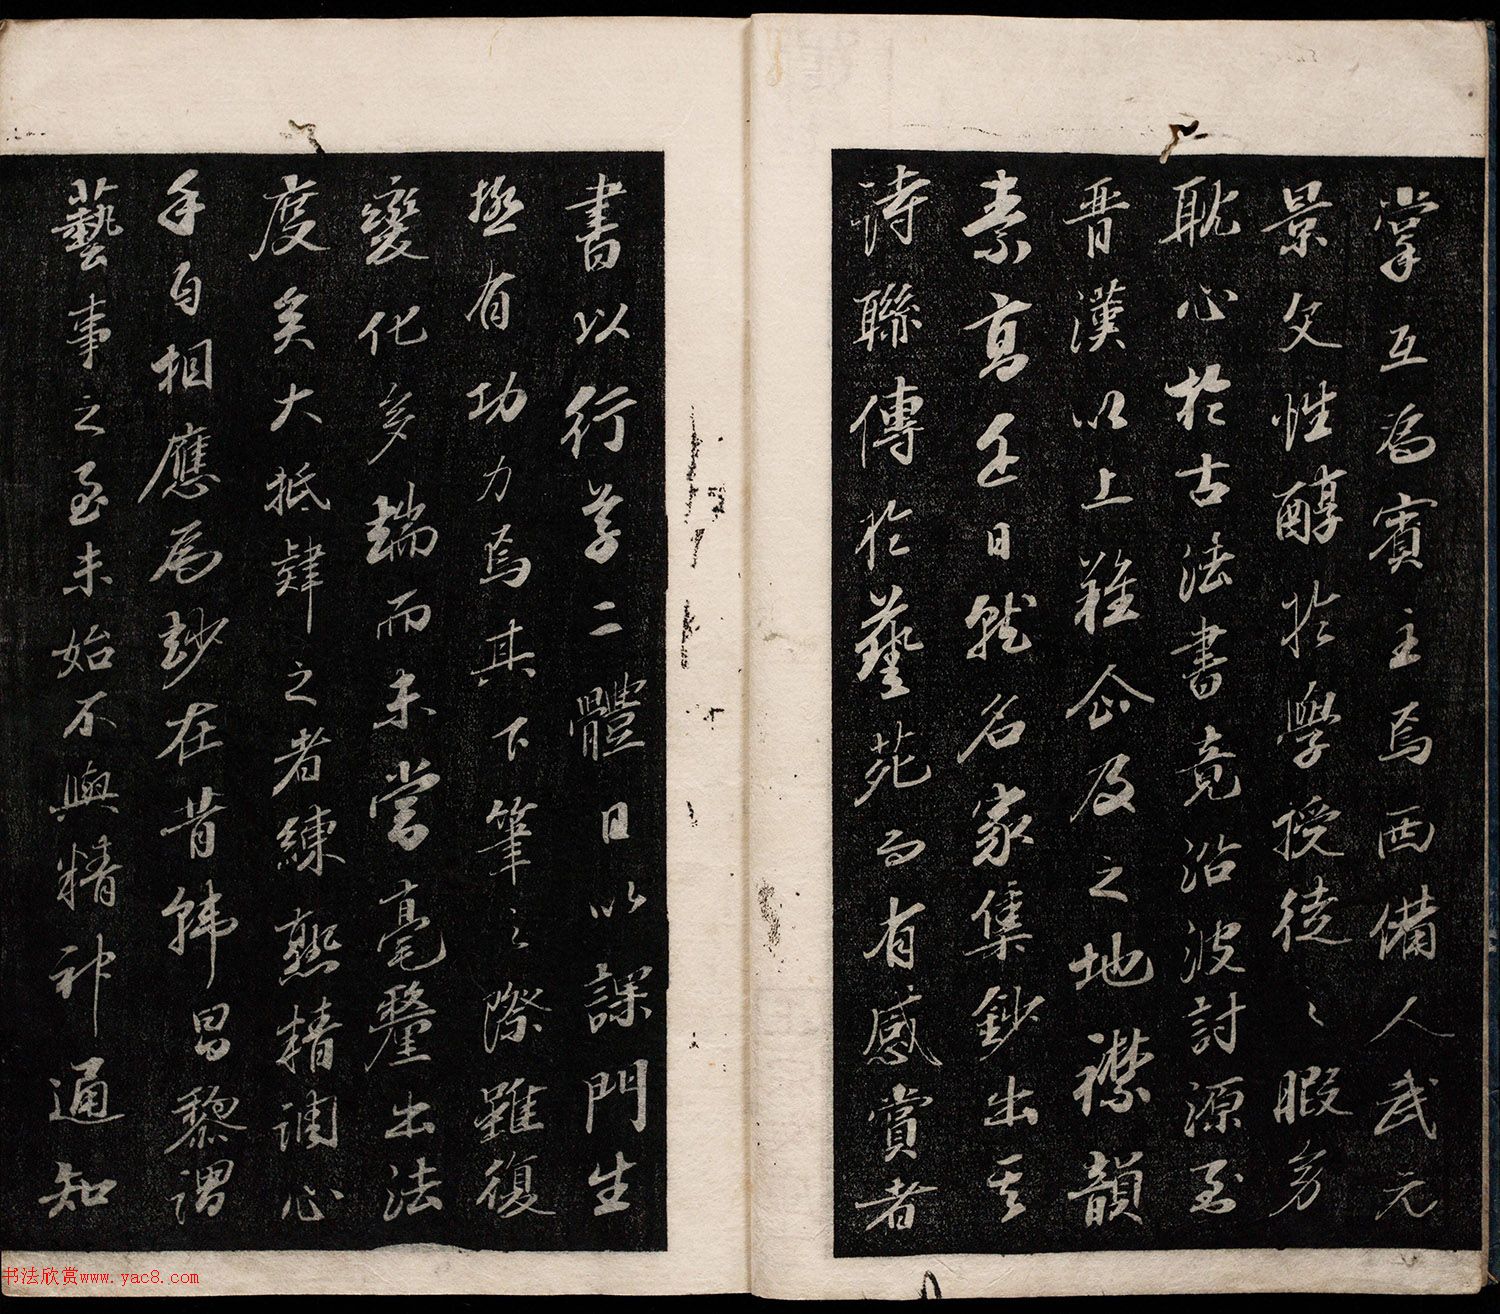 掌互為賓主焉西備人武元
景文性醇於學授徒之暇旁
耽心於古法書竟沿波討源至
晋漢以上難企及之地襟韻
素高壬日就名家集鈔出其
诗聯傳於藝苑而有感賞者
書以行草二體日以課門生
極有功力焉其下筆之際雖復
變化多端而未嘗毫釐出法
度矣大抵肄之者練熟精调心
手自相應尾妙在昔韩昌黎謂
藝事之至未始不與精神通知
书法欣赏www.yac8.com